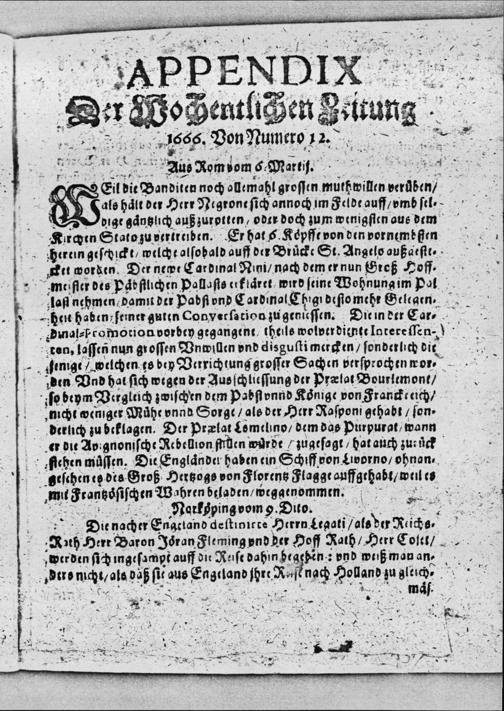 APPENDIX
Der Wochentlichen Zeitung
1666. Von Numero 12.
Aus Rom vom 6. Martij.
WEil die Banditen noch allemahl grossen muthwillen verüben/
als hält der Herr Negrone sich annoch im Felde auff/ vmb sel-
bige gäntzlich außzurotten/ oder doch zum wenigsten aus dem
Kirchen Stato zu vertreiben. Er hat 6. Köpffe von den vornembsten
herein geschickt/ welche alsobald auff der Brücke St. Angelo außgeste-
cket worden. Der newe Cardinal Nini/ nach dem er nun Groß Hoff-
meister des Päbstlichen Pallasts erkläret/ wird seine Wohnung im Pal
last nehmen/ damit der Pabst vnd Cardinal Chigi desto mehr Gelegen-
heit haben/ seiner guten Conversation zu geniessen. Die in der Car-
dinal-promotion vorbey gegangene/ theils wolverdiente Interessen-
ten, lassen nun grossen Vnwillen vnd disgusti mercken/ sonderlich die
jenige/ welchen es bey Verrichtung grosser Sachen versprochen wor-
den Vnd hat sich wegen der Ausschliessung der Prælat Bourlemont/
so beym Vergleich zwischen dem Pabst vnnd Könige von Franckreich/
nicht weniger Mühe vnnd Sorge/ als der Herr Rasponi gehabt/ son-
derlich zu beklagen. Der Prælat Lomelino/ dem das Purpurat/ wann
er die Avignonische Rebellion stillen würde/ zugesagt/ hat auch zurück
stehen müssen. Die Engländer haben ein Schiff von Livorno/ ohnan-
gesehen es des Groß Hertzogs von Florentz Flagge auffgehabt/ weil es
mit Frantzösischen Wahren beladen/ weggenommen.
Norköping vom 9. Dito.
Die nacher Engeland destinirte Herrn Legati/ als der Reichs-
Rath Herr Baron Jöran Fleming vnd der Hoff Rath/ Herr Coiet/
werden sich ingesampt auff die Reise dahin begeben: vnd weiß man an-
ders nicht/ als daß sie aus Engeland jhre Reise nach Holland zu gleich-
mäs.